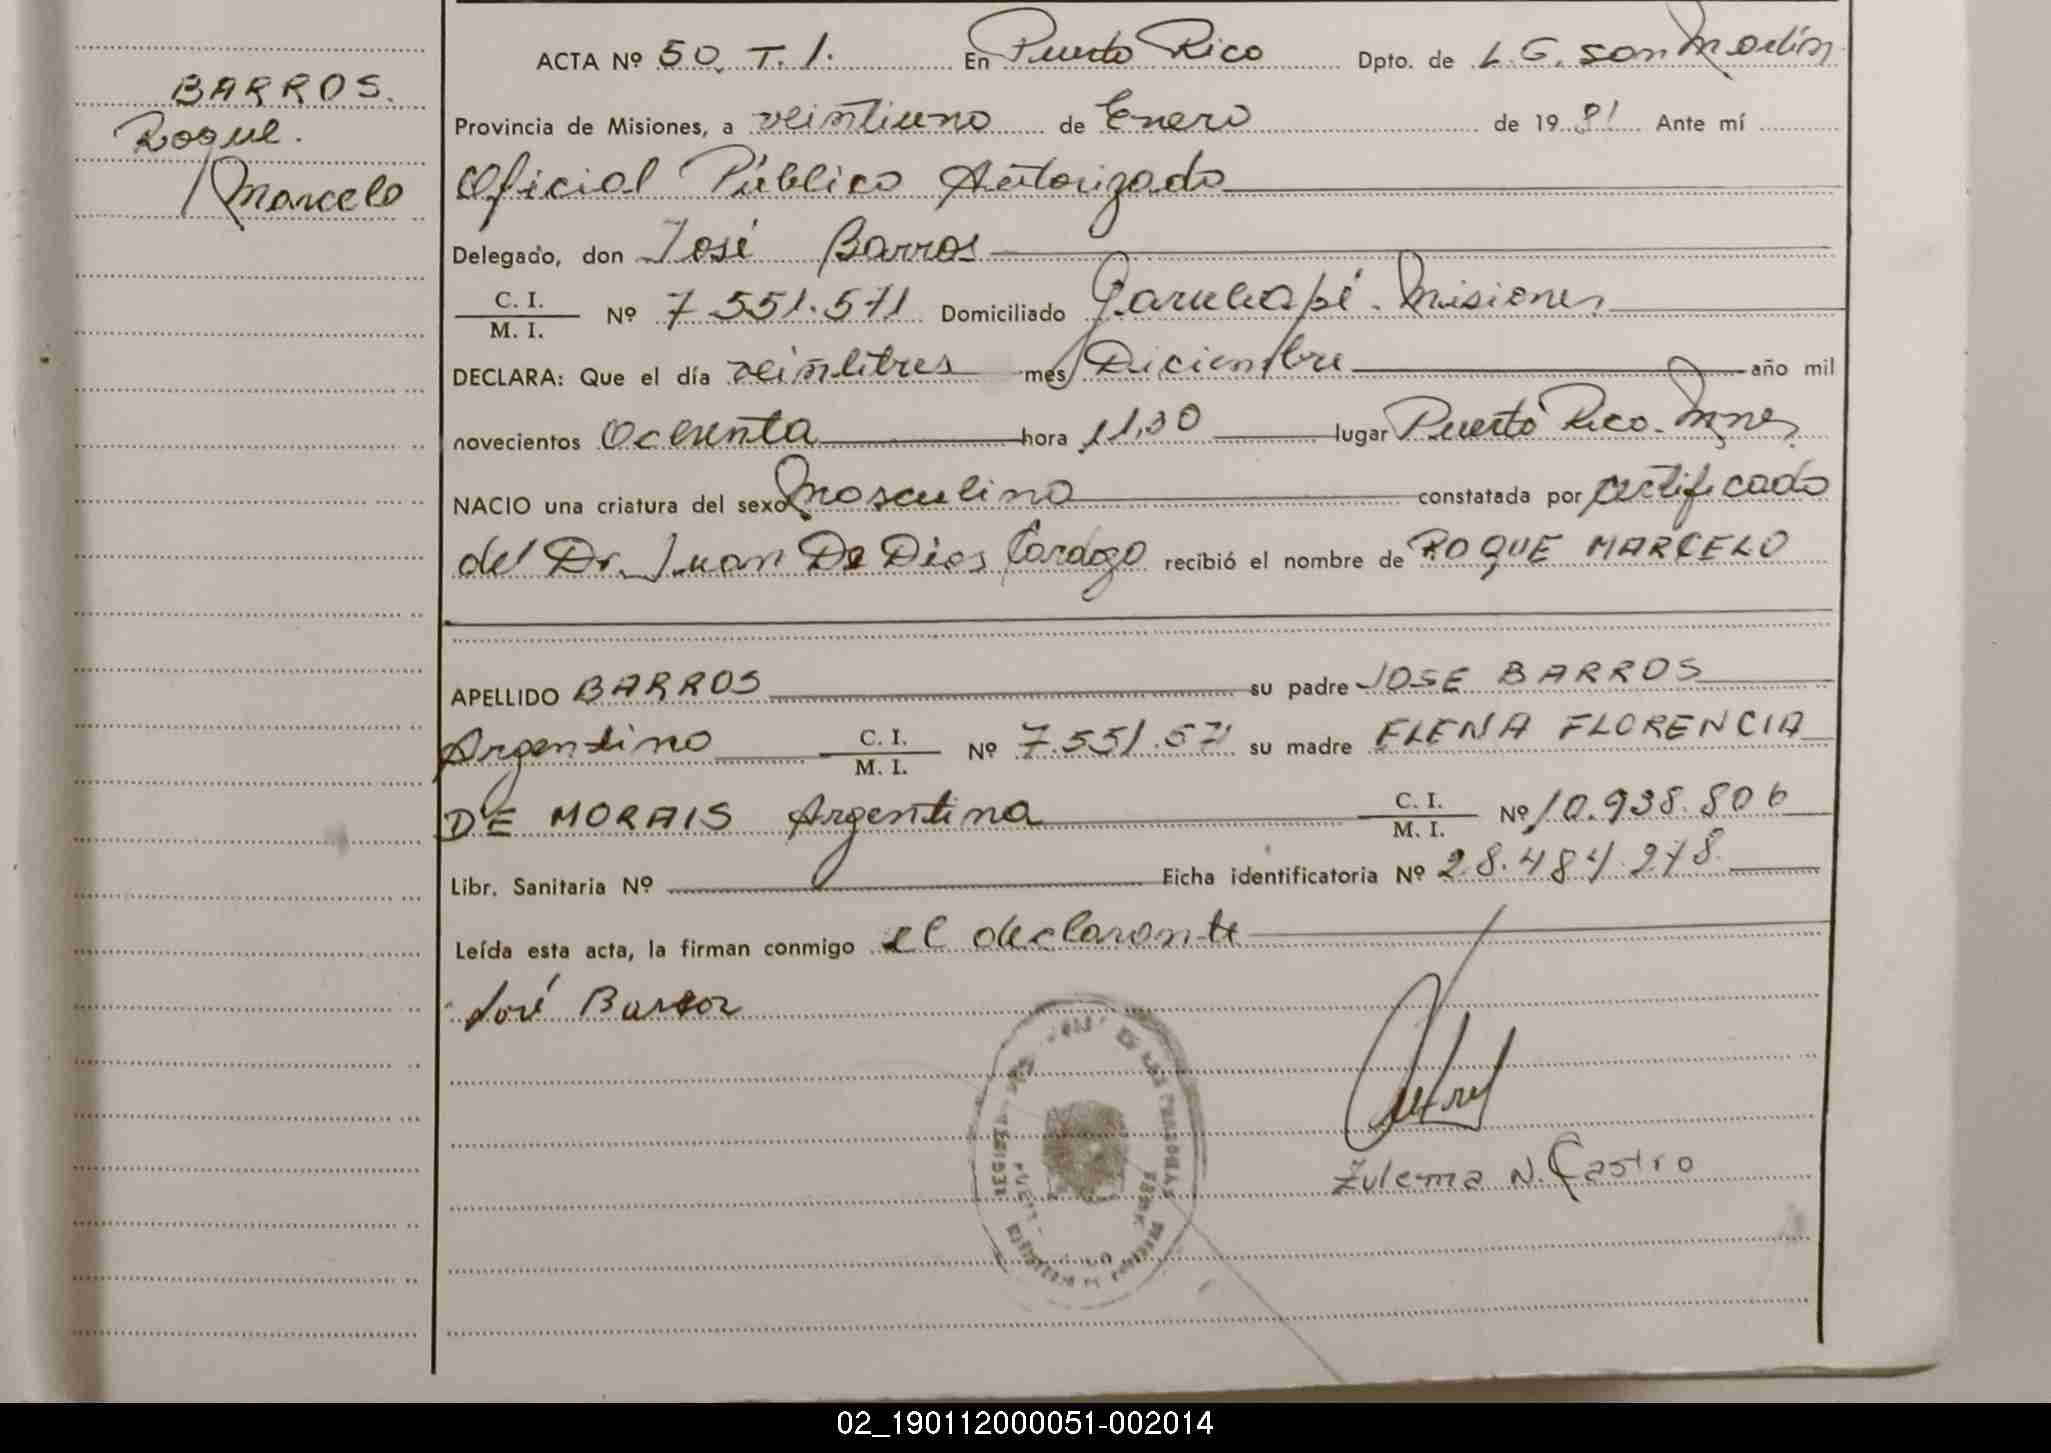 BARROS.
Roque.
Marcelo
ACTA Nº 50. T. 1. En Puerto Rico Dpto. de L. G. San Martín
Provincia de Misiones, a veintiuno de Enero de 1981 Ante mí
Oficial Público Autorizado
Delegado, don José Barros
C. I.
M. I.
Nº 7.551.571 Domiciliado Garuhapé. Misiones
DECLARA: Que el día veintitres mes Diciembre año mil
novecientos ochenta hora 11,30 lugar Puerto Rico. Mnes.
NACIO una criatura del sexo masculino constatada por certificado
del Dr. Juan De Dios recibió el nombre de ROQUE MARCELO
APELLIDO BARROS su padre JOSE BARROS
Argentino C. I.
M. I.
Nº 7.551.571 su madre ELENA FLORENCIA
DE MORAIS Argentina C. I.
M. I.
Nº 10.938.806
Libr. Sanitaria Nº Ficha identificatoria Nº 28.484.278
Leída esta acta, la firman conmigo el declarante
José Barros
Zulema N. Castro
02_190112000051-002014